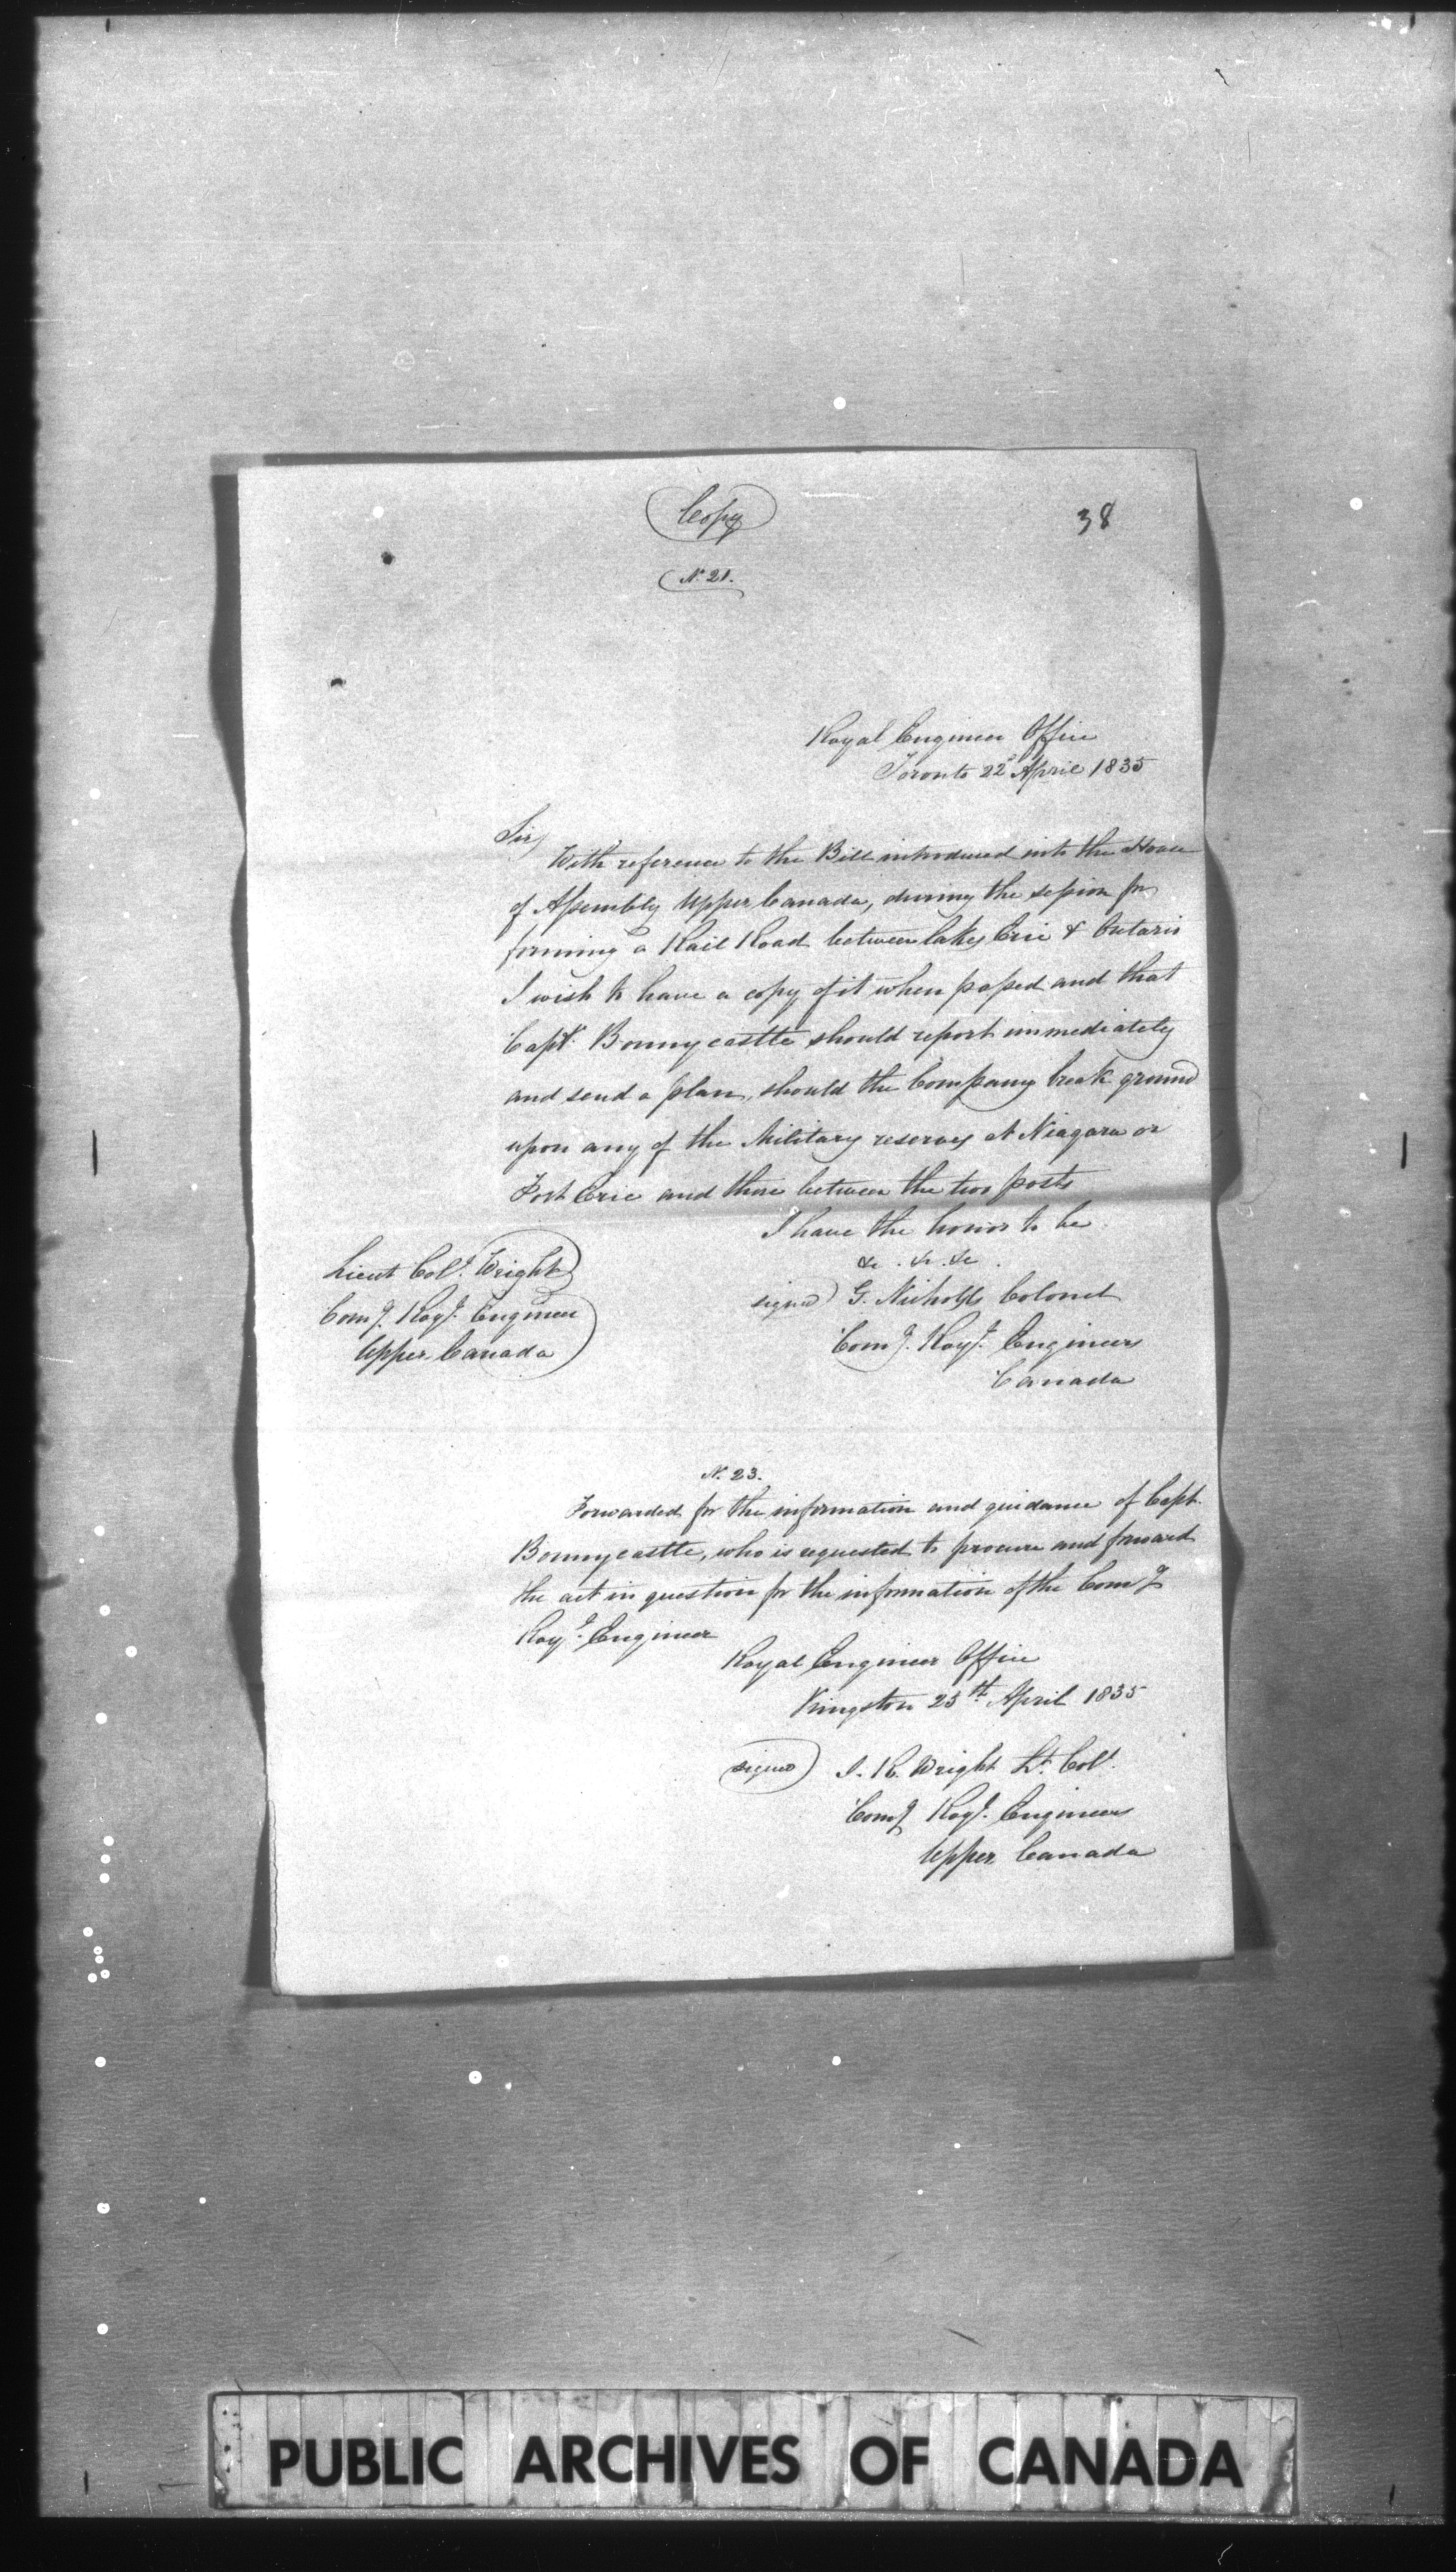 Copy
38
No. 21.
Royal Engineer Office
Toronto 22d April 1835
Sir,
With reference to the Bill introduced into the House
of Assembly Upper Canada, during the session for
forming a Rail Road between lakes Erie & Ontario
I wish to have a copy of it when passed and that
Capt. Bonnycastle should report immediately
and send a plan, should the Company break ground
upon any of the Military reserves at Niagara or
Fort Erie and those between the two posts
I have the honor to be
&c. &c. &c.
signed) G. Nicholls Colonel
Comg. Royl. Engineers
Canada
Lieut Coll. Wright
Comg. Royl. Engineer
Upper Canada
No. 23.
Forwarded for the information and guidance of Capt.
Bonnycastle, who is requested to procure and forward
the act in question for the information of the Comg
Royl. Engineer
Royal Engineer Office
Kingston 25th April 1835
signed) I. R. Wright Lt. Coll.
Comg Royl. Engineers
Upper Canada
PUBLIC ARCHIVES OF CANADA